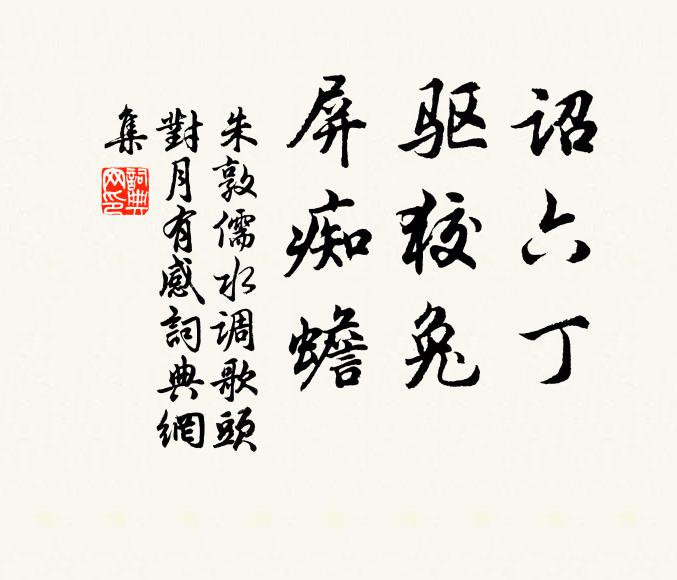 诏六丁
驱狡兔
屏痴蟾
朱敦儒水调歌頭
對月有感詞典網
集
詞典网印